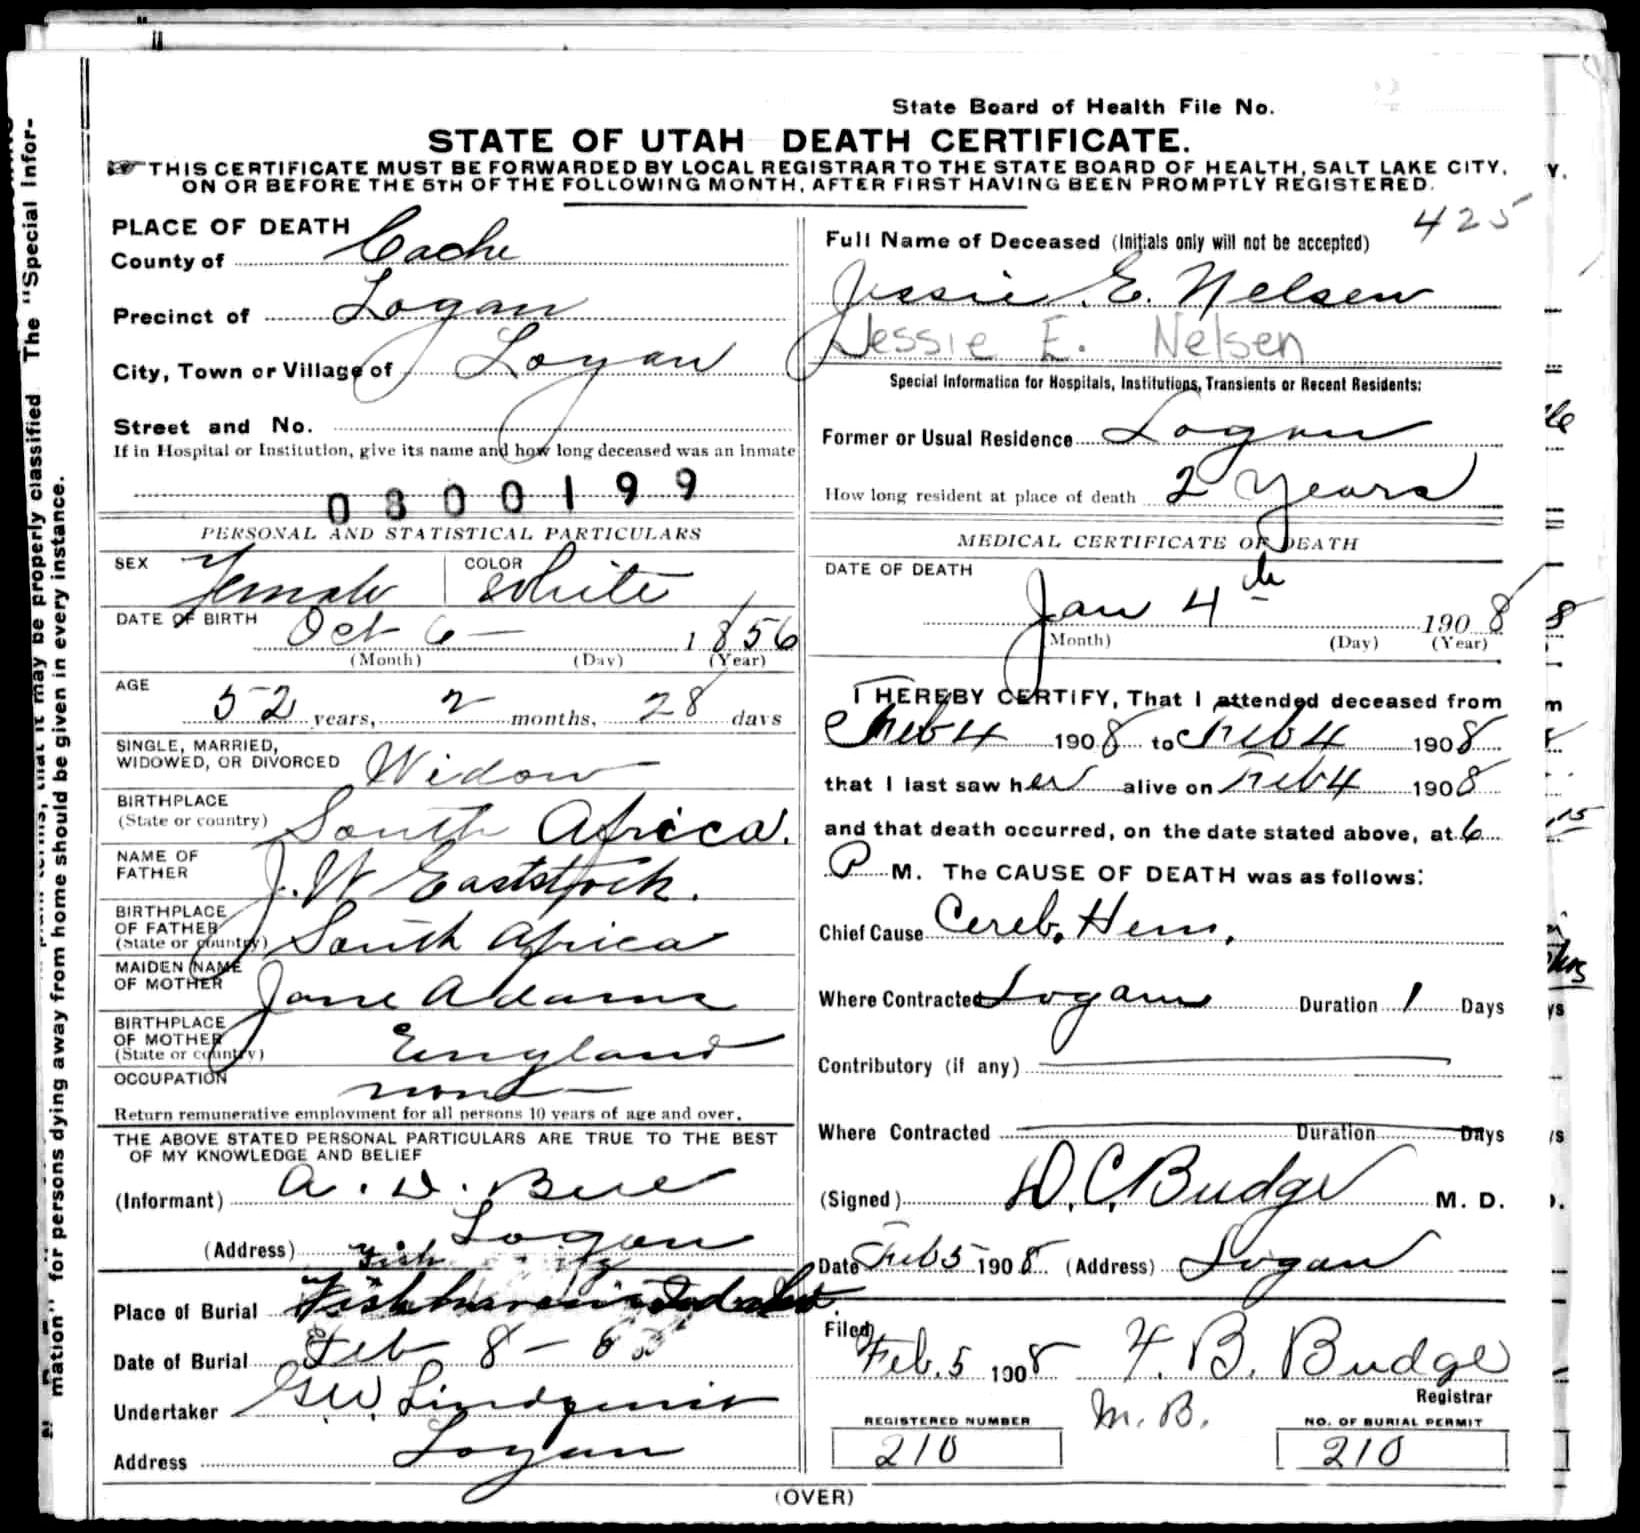 State Board of Health File No.
STATE OF UTAH DEATH CERTIFICATE.
THIS CERTIFICATE MUST BE FORWARDED BY LOCAL REGISTRAR TO THE STATE BOARD OF HEALTH, SALT LAKE CITY,
ON OR BEFORE THE 5TH OF THE FOLLOWING MONTH, AFTER FIRST HAVING BEEN PROMPTLY REGISTERED.
PLACE OF DEATH
County of Cache
Precinct of Logan
City, Town or Village of Logan
Street and No.
If in Hospital or Institution, give its name and how long deceased was an inmate
0800199
PERSONAL AND STATISTICAL PARTICULARS
SEX Female COLOR White
DATE OF BIRTH Oct 6 — 1856
(Month) (Day) (Year)
AGE
52 years, 2 months, 28 days
SINGLE, MARRIED,
WIDOWED, OR DIVORCED Widow
BIRTHPLACE
(State or country) South Africa.
NAME OF
FATHER J. W. Eaststock.
BIRTHPLACE
OF FATHER
(State or country) South Africa
MAIDEN NAME
OF MOTHER Jane Adams
BIRTHPLACE
OF MOTHER
(State or country) England
OCCUPATION none
Return remunerative employment for all persons 10 years of age and over.
THE ABOVE STATED PERSONAL PARTICULARS ARE TRUE TO THE BEST
OF MY KNOWLEDGE AND BELIEF
(Informant) A. D.
(Address) Logan
Place of Burial
Date of Burial Feb 8 —
Undertaker G.W. Lindquist
Address Logan
425
Full Name of Deceased (Initials only will not be accepted)
Jessie E. Nelsen
Jessie E. Nelsen
Special Information for Hospitals, Institutions, Transients or Recent Residents:
Former or Usual Residence Logan
How long resident at place of death 2 Years
MEDICAL CERTIFICATE OF DEATH
DATE OF DEATH
Jan 4th 1908
(Month) (Day) (Year)
I HEREBY CERTIFY, That I attended deceased from
Feb 4 1908 to Feb 4 1908
that I last saw her alive on Feb 4 1908
and that death occurred, on the date stated above, at 6
P M. The CAUSE OF DEATH was as follows:
Chief Cause Cereb. Hem.
Where Contracted Logan Duration 1 Days
Contributory (if any)
Where Contracted Duration Days
(Signed) D. C. Budge M. D.
Date Feb 5 1908 (Address) Logan
Filed
Feb. 5 1908 F. B. Budge
Registrar
M. B.
REGISTERED NUMBER
210
NO. OF BURIAL PERMIT
210
(OVER)
mation" for persons dying away from home should be given in every instance.
that it may be properly classified. The "Special Infor-